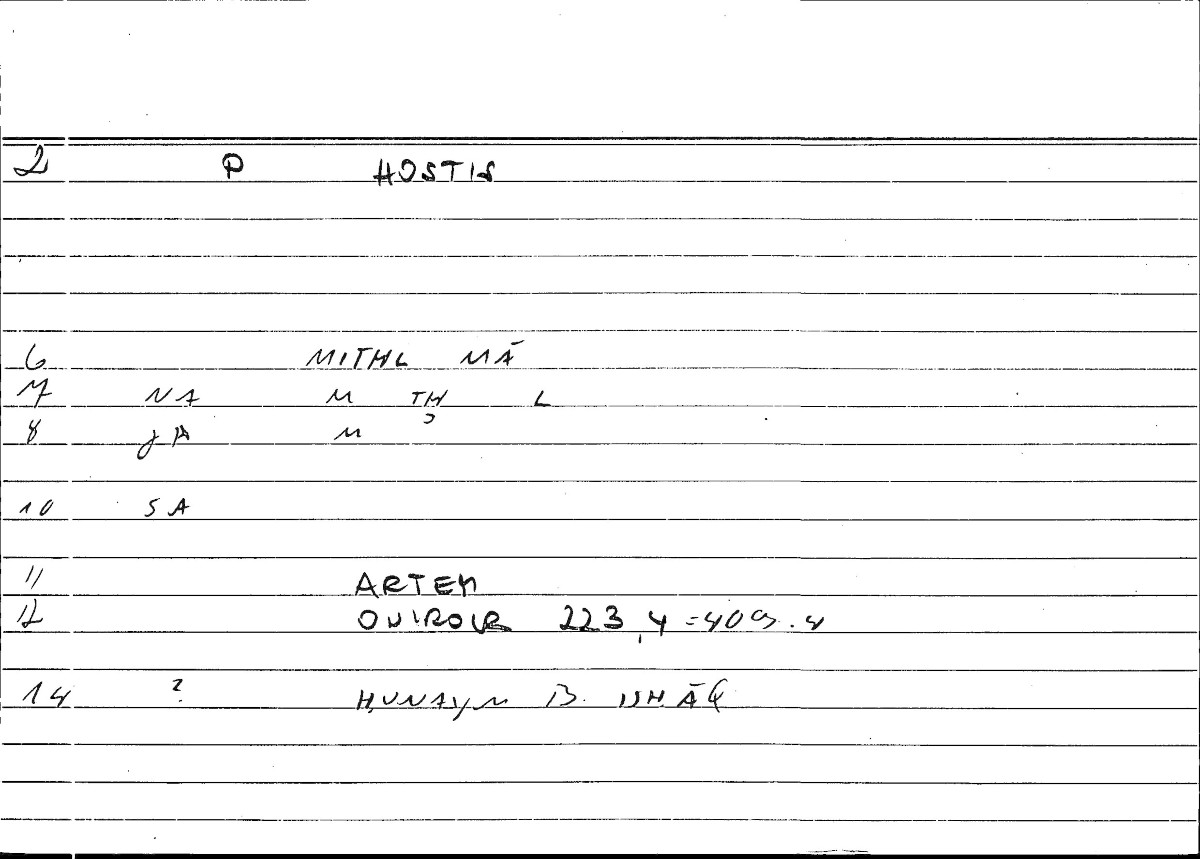 2 P HOSTIS
6 MITHL MĀ
7 NA M TH L
8 JA M
10 SA
11 ARTEM
12 ONIROCR 223,4 = 409.4
14 ? ḤUNAYN B. ISḤĀQ